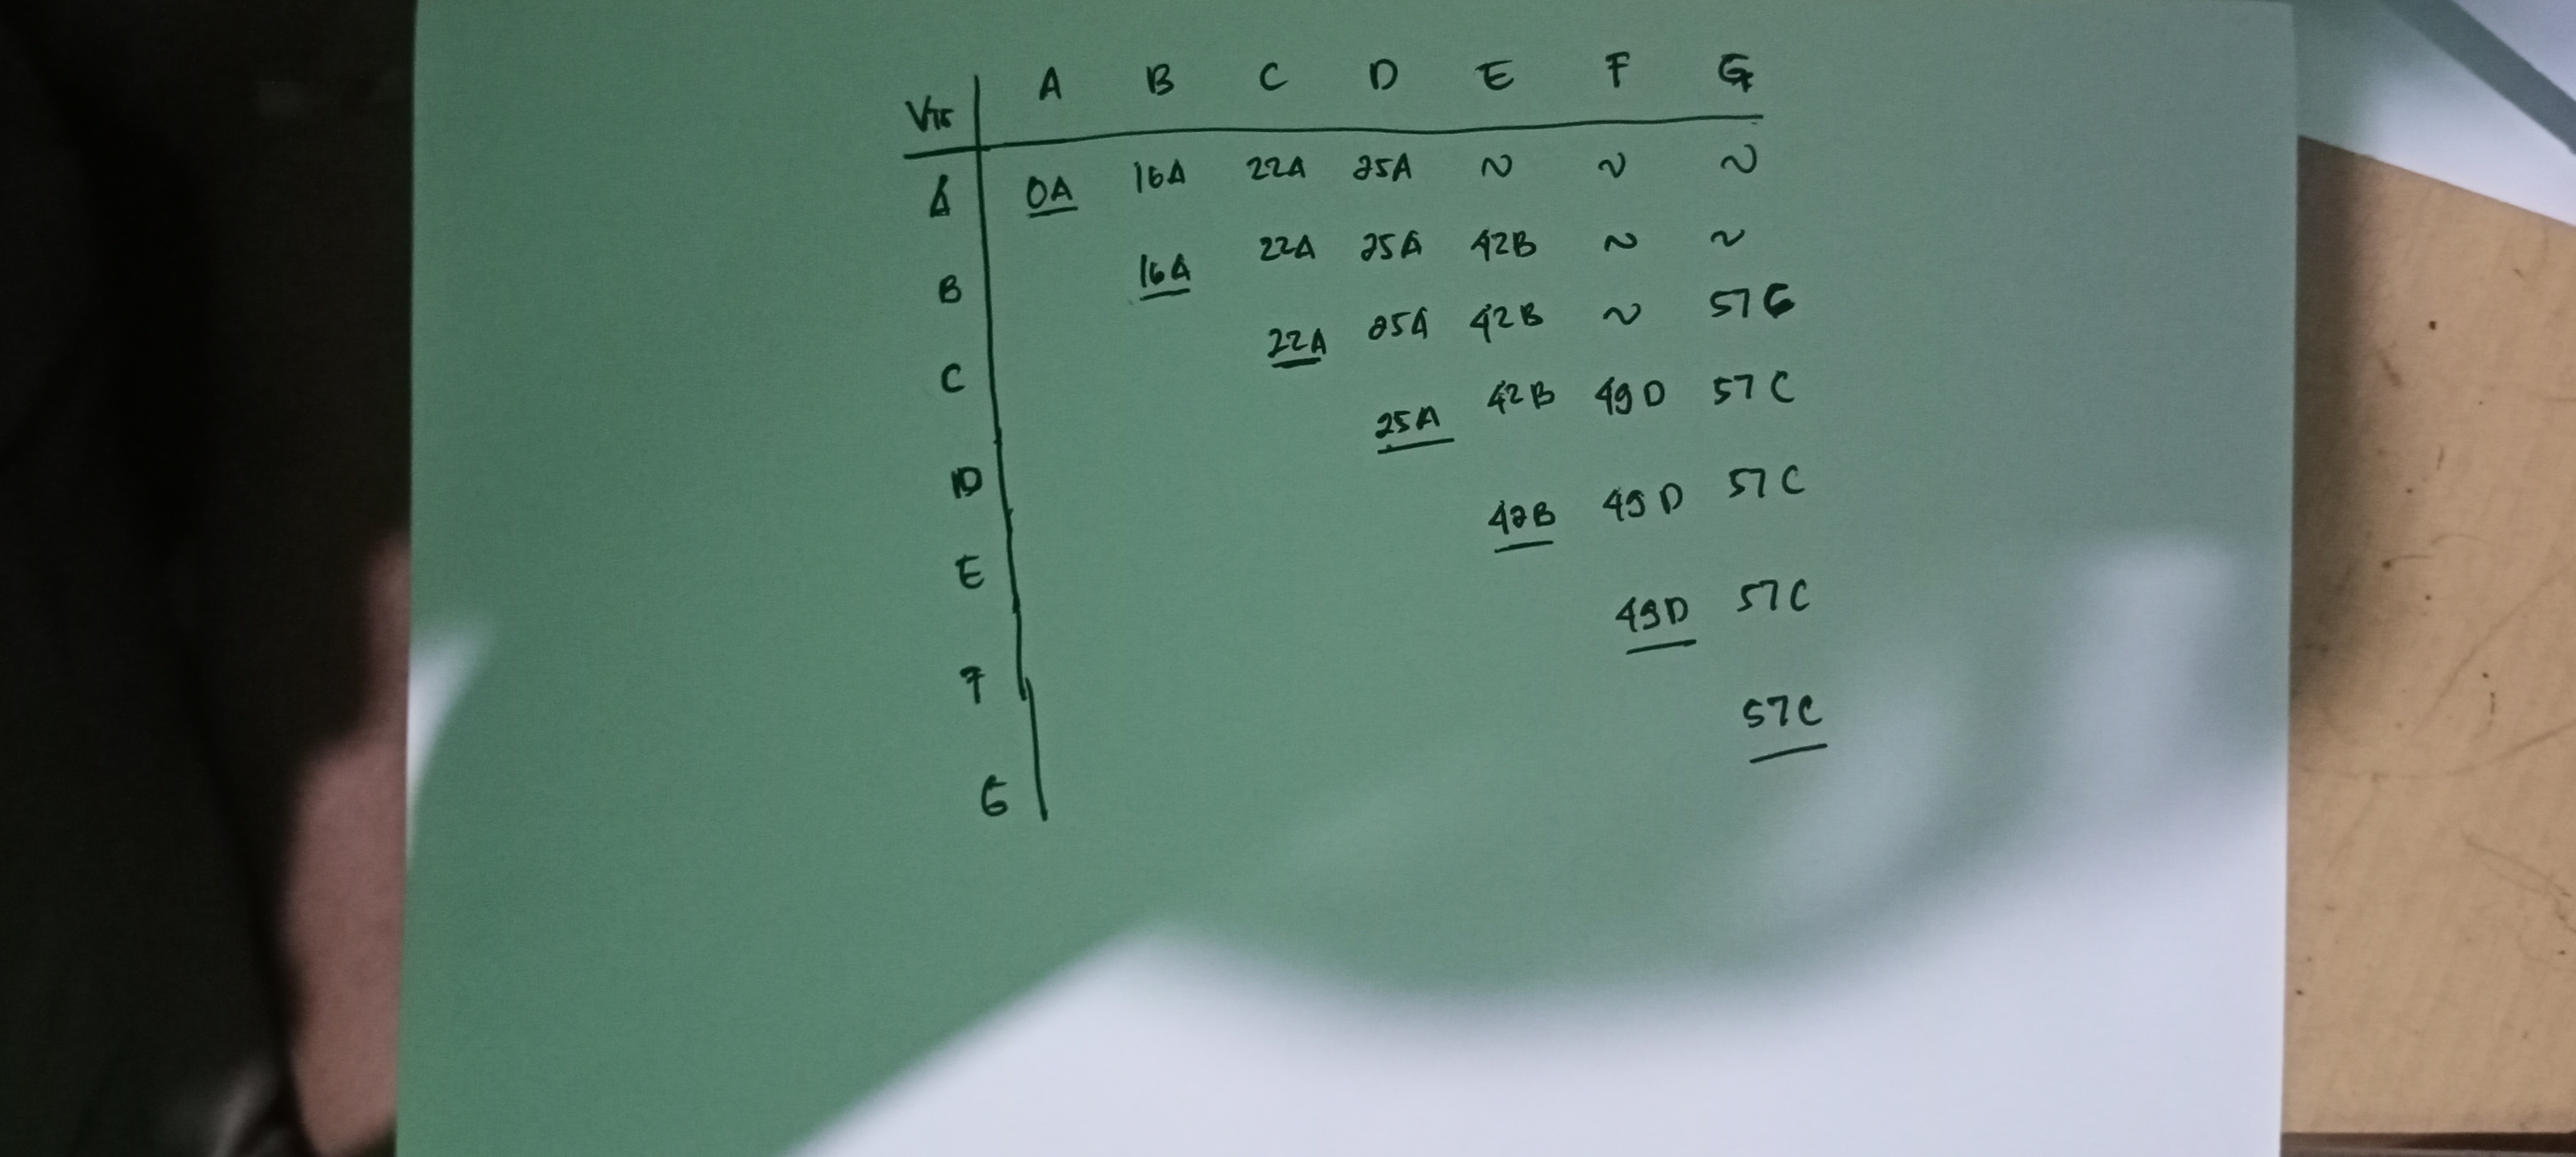 V75 A B C D E F G
A 0A 16A 22A 25A ~ ~ ~
B 16A 22A 25A 42B ~ ~
C 22A 25A 42B ~ 57G
D 25A 42B 49D 57C
E 42B 49D 57C
F 49D 57C
G 57C